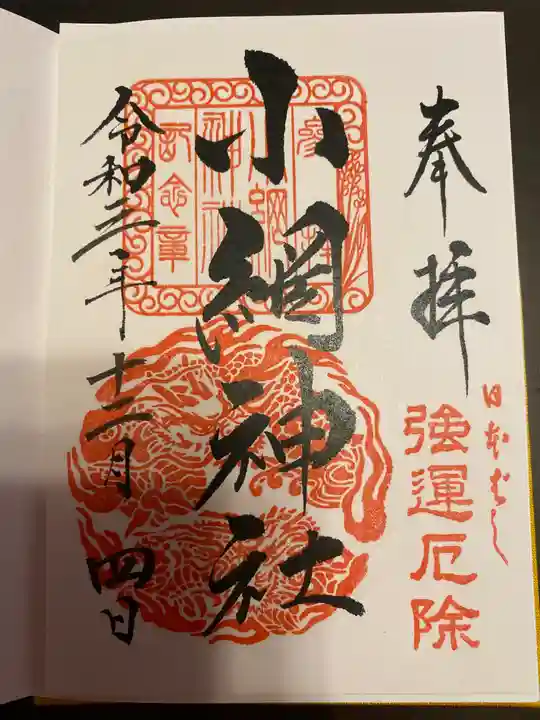 奉拝
日本ばし
強運厄除
参拝
小網
神社
記念章
小網神社
令和三年十二月四日